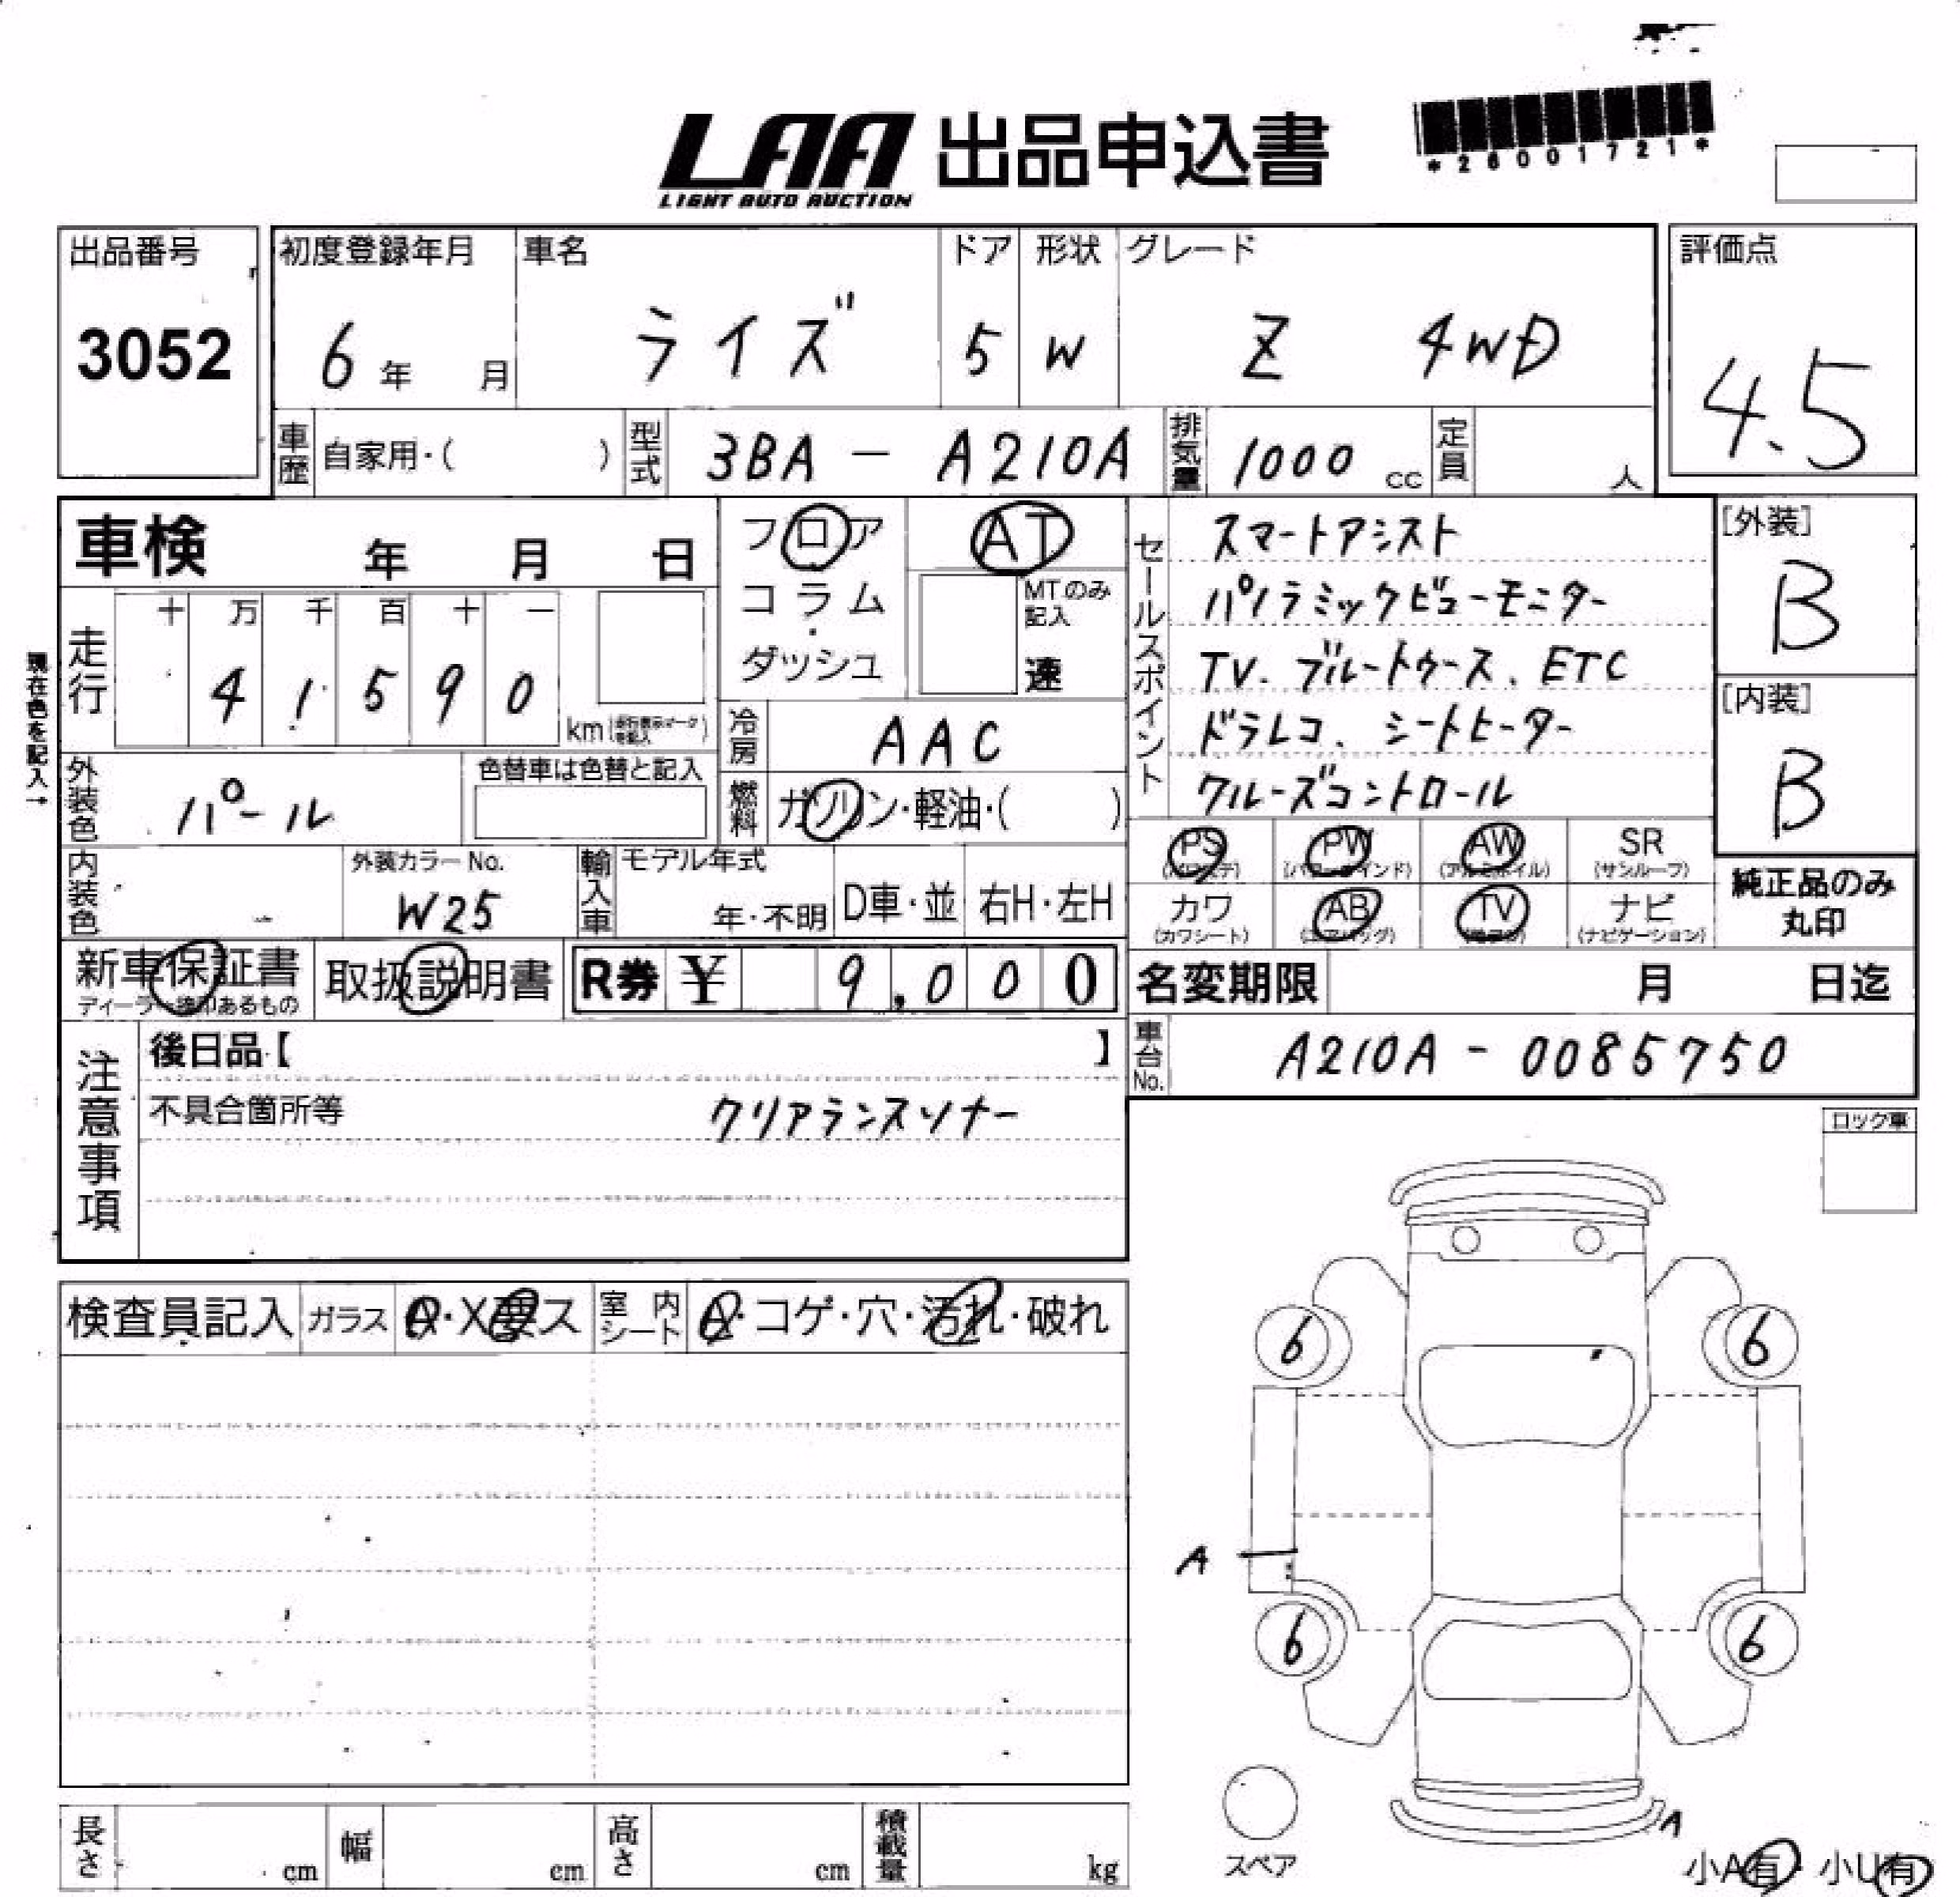 LAA 出品申込書
LIGHT AUTO AUCTION
*26001721*
出品番号
3052
初度登録年月
6年 月
車名
ライズ
ドア
5
形状
W
グレード
Z 4WD
評価点
4.5
車歴 自家用・( )
型式 3BA - A210A
排気量 1000 cc
定員 人
車検 年 月 日
フロア
コラム
・
ダッシュ
AT
MTのみ
記入
速
セールスポイント
スマートアシスト
パノラミックビューモニター
TV. ブルートゥース、ETC
ドラレコ、シートヒーター
クルーズコントロール
[外装]
B
[内装]
B
現在色を記入→
走行
十 万 千 百 十 一
4 1 5 9 0
km
冷房 AAC
燃料 ガソリン・軽油・( )
外装色 パール
色替車は色替と記入
内装色
外装カラーNo.
W25
輸入車
モデル年式
年・不明
D車・並
右H・左H
PS PW AW SR
(パワステ) (パワーウインド) (アルミホイル) (サンルーフ)
カワ AB TV ナビ
(カワシート) (エアバッグ) (ナビゲーション)
純正品のみ
丸印
新車保証書
ディーラー捺印あるもの
取扱説明書
R券 ¥ 9,000
名変期限 月 日迄
車台No. A210A - 0085750
注意事項
後日品【 】
不具合箇所等 クリアランスソナー
ロック車
検査員記入
ガラス A・X要ス
室内シート A・コゲ・穴・汚れ・破れ
6 6
A
6 6
A
スペア
小A有・小U有
長さ cm
幅 cm
高さ cm
積載量 kg